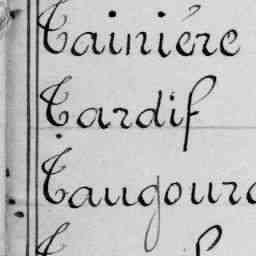 Tainiére
Tardif
Taugour